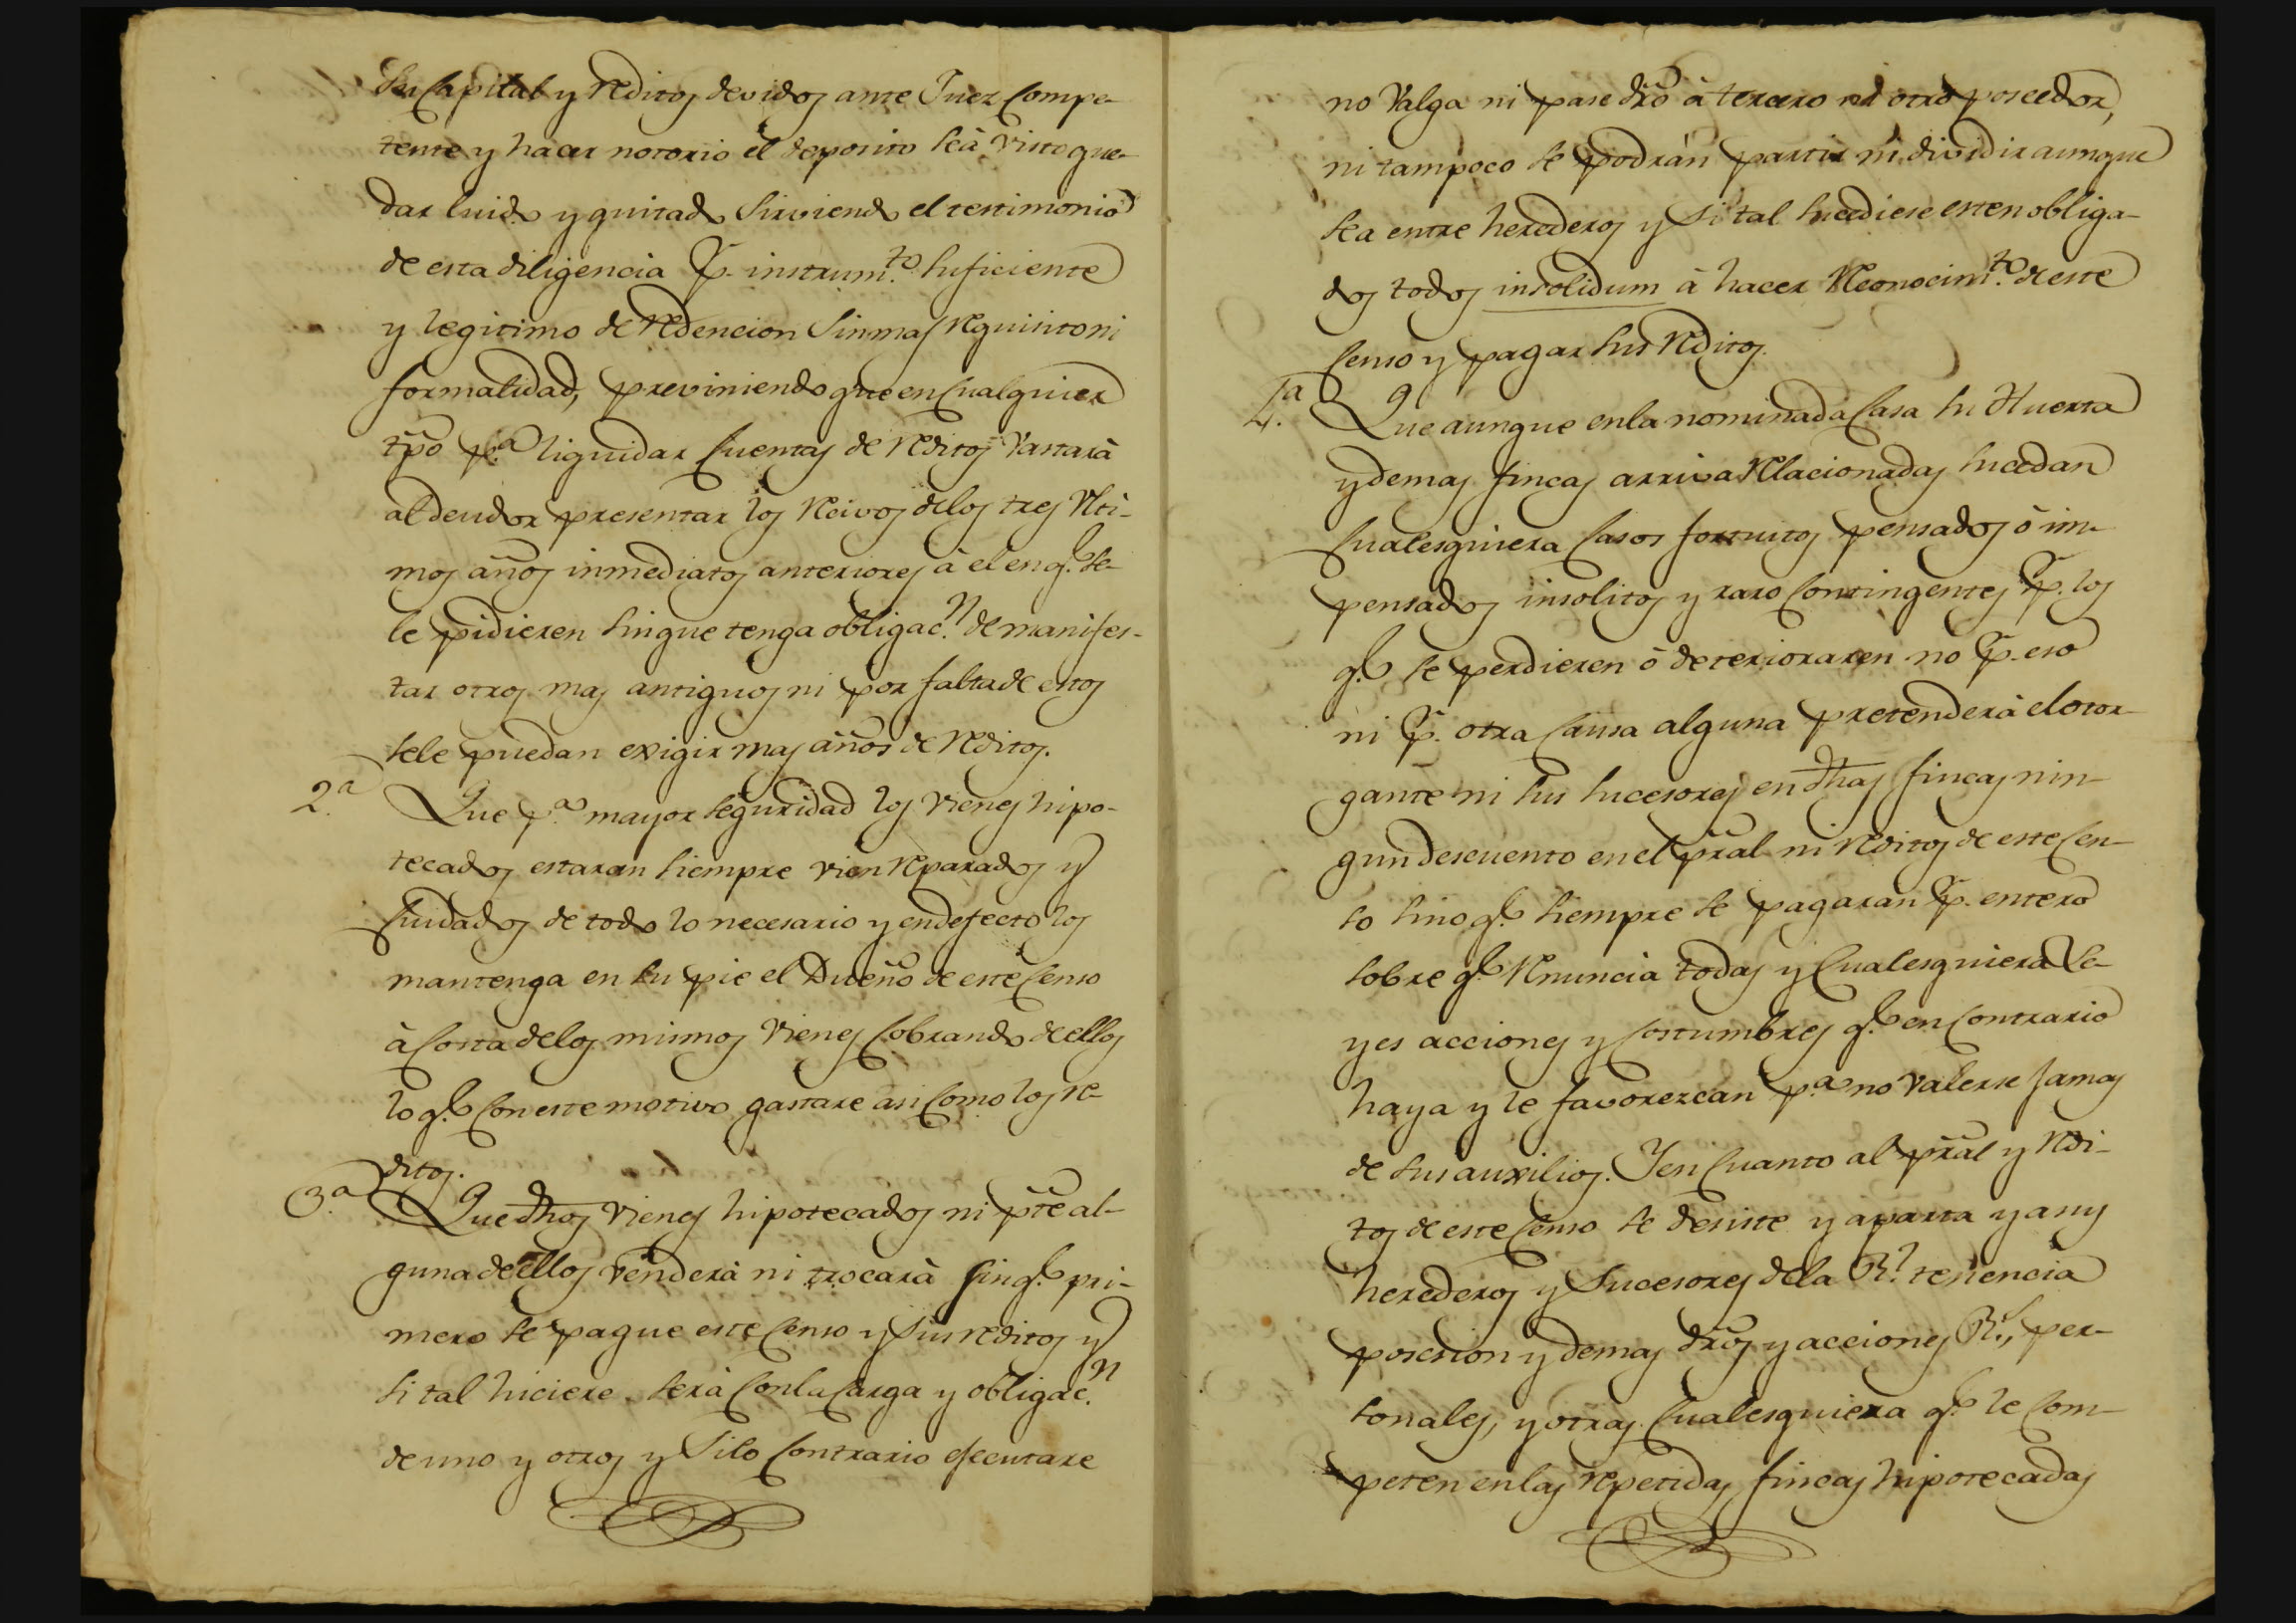 su Capital y reditos devidos ante Juez Compe-
tente y hacer notorio el deposito seà visto que-
dar luido y quitado sirviendo el testimonio
de esta diligencia p.r instrum.to suficiente
y legitimo de redencion sin mas requisito ni
formalidad, previniendo que en qualquier
tpõ p.a liquidar Cuentas de reditos vastarà
al deudor presentar los recivos de los tres ulti-
mos años inmediatos anteriores à el en q.e se
le pidieren sin que tenga obligac.n de manifes-
tar otros mas antiguos ni por falta de estos
sele puedan exigir mas años de reditos.
2.a Que p.a mayor seguridad los vienes hipo-
tecados estaran siempre vien reparados y
Cuidados de todo lo necesario y en defecto los
mantenga en su pie el Dueño de este Censo
à Costa de los mismos vienes Cobrando de ellos
lo q.e Con este motivo gastare asi Como los re-
ditos.
3.a Que dhos vienes hipotecados ni pte al-
guna de ellos venderà ni trocarà sin q.e pri-
mero se pague este Censo y sus reditos y
si tal hiciere serà Con la Carga y obligac.n
de uno y otros y si lo Contrario efecutare
no valga ni pase drõ à tercero ni otro poseedor,
ni tampoco se podràn partir ni dividir aunque
sea entre herederos y si tal sucediese esten obliga-
dos todos insolidum à hacer reconocim.to de este
Censo y pagar sus reditos.
4.a Que aunque en la nominada Casa su Huerta
y demas fincas arriva relacionadas sucedan
Cualesquiera Casos fortuitos pensados ò im-
pensados insolitos y raro Contingentes p.r los
q.e se perdieren ò deterioraren no p.r eso
ni p.r otra Causa alguna pretenderà el otor-
gante ni sus sucesores en dhas fincas nin-
gun descuento en el pral ni reditos de este Cen-
so sino q.e siempre se pagaran p.r entero
sobre q.e renuncia todas y Cualesquiera Le-
yes acciones y Costumbres q.e en Contrario
haya y le favorezcan p.a no valerse jamas
de sus auxilios. Y en Cuanto al pral y redi-
tos de este Censo se desiste y aparta y a sus
herederos y sucesores de la R.l tenencia
posesion y demas drõs y acciones R.s, per-
sonales, y otras Cualesquiera q.e le Com-
peten en las repetidas fincas hipotecadas